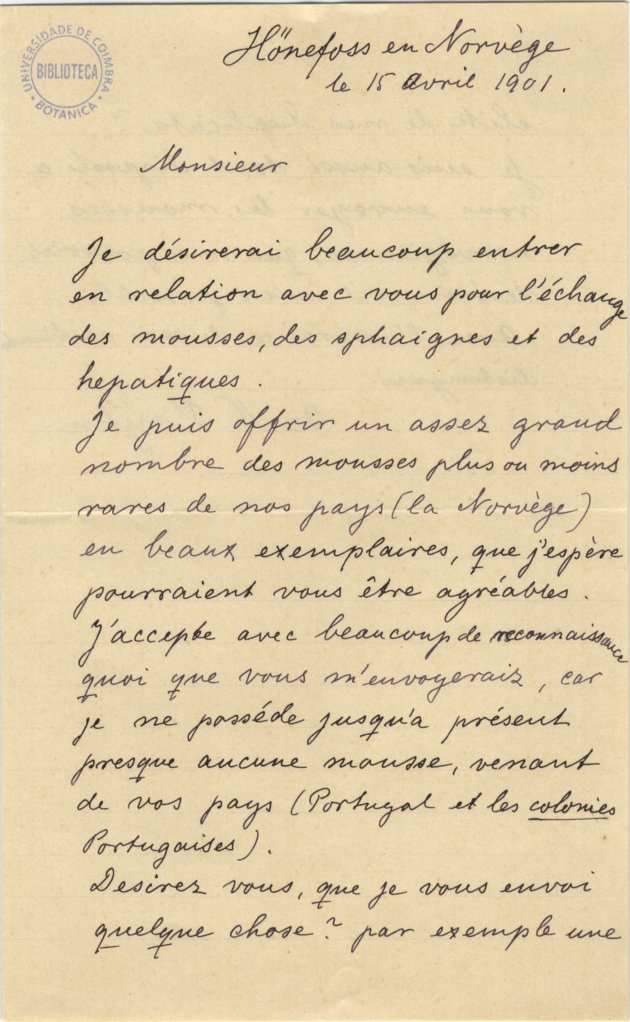 UNIVERSIDADE DE COIMBRA
BIBLIOTECA
BOTANICA
Hönefoss en Norvège
le 15 avril 1901.
Monsieur
Je désirerai beaucoup entrer
en relation avec vous pour l'échange
des mousses, des sphaignes et des
hepatiques.
Je puis offrir un assez grand
nombre des mousses plus ou moins
rares de nos pays (la Norvège)
en beaux exemplaires, que j'espère
pourraient vous être agréables.
J'accepte avec beaucoup de reconnaissance
quoi que vous m'envoyeraiz, car
je ne posséde jusqu'a présent
presque aucune mousse, venant
de vos pays (Portugal et les colonies
Portugaises).
Desirez vous, que je vous envoi
quelque chose? par exemple une